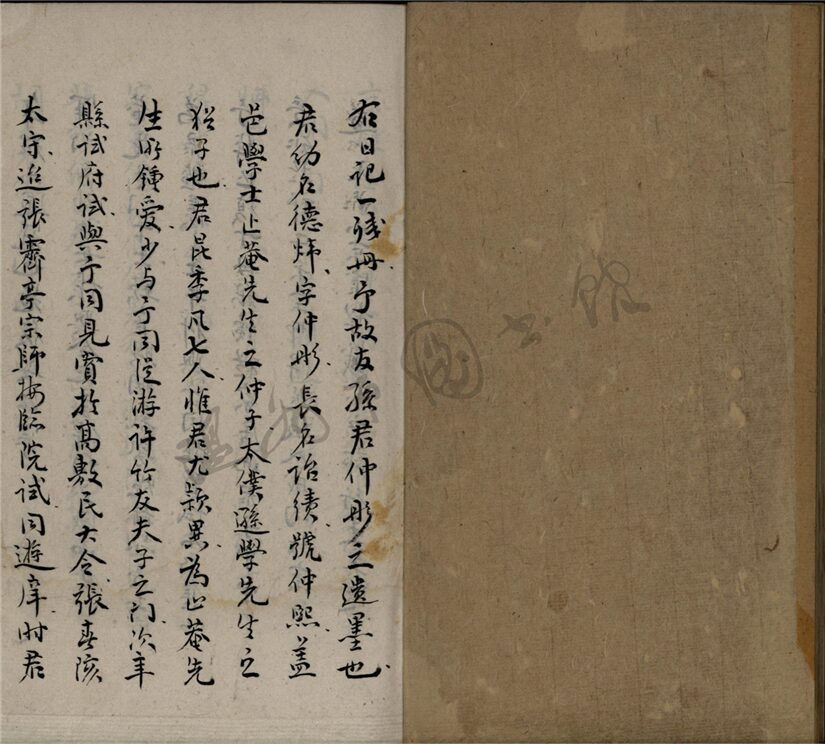 右日記一殘册予故友孫君仲彤之遺墨也
君幼名德煒字仲彤長名詒績號仲熙蓋
邑學士止菴先生之仲子太僕遜學先生之
猶子也君昆季凡七人惟君尤穎異為止菴先
生所鍾愛少与予同從游許竹友夫子之門次年
縣試府試與予同見賞於高敷民大令張春陔
太守迨張霽亭宗師按臨院試同遊庠时君